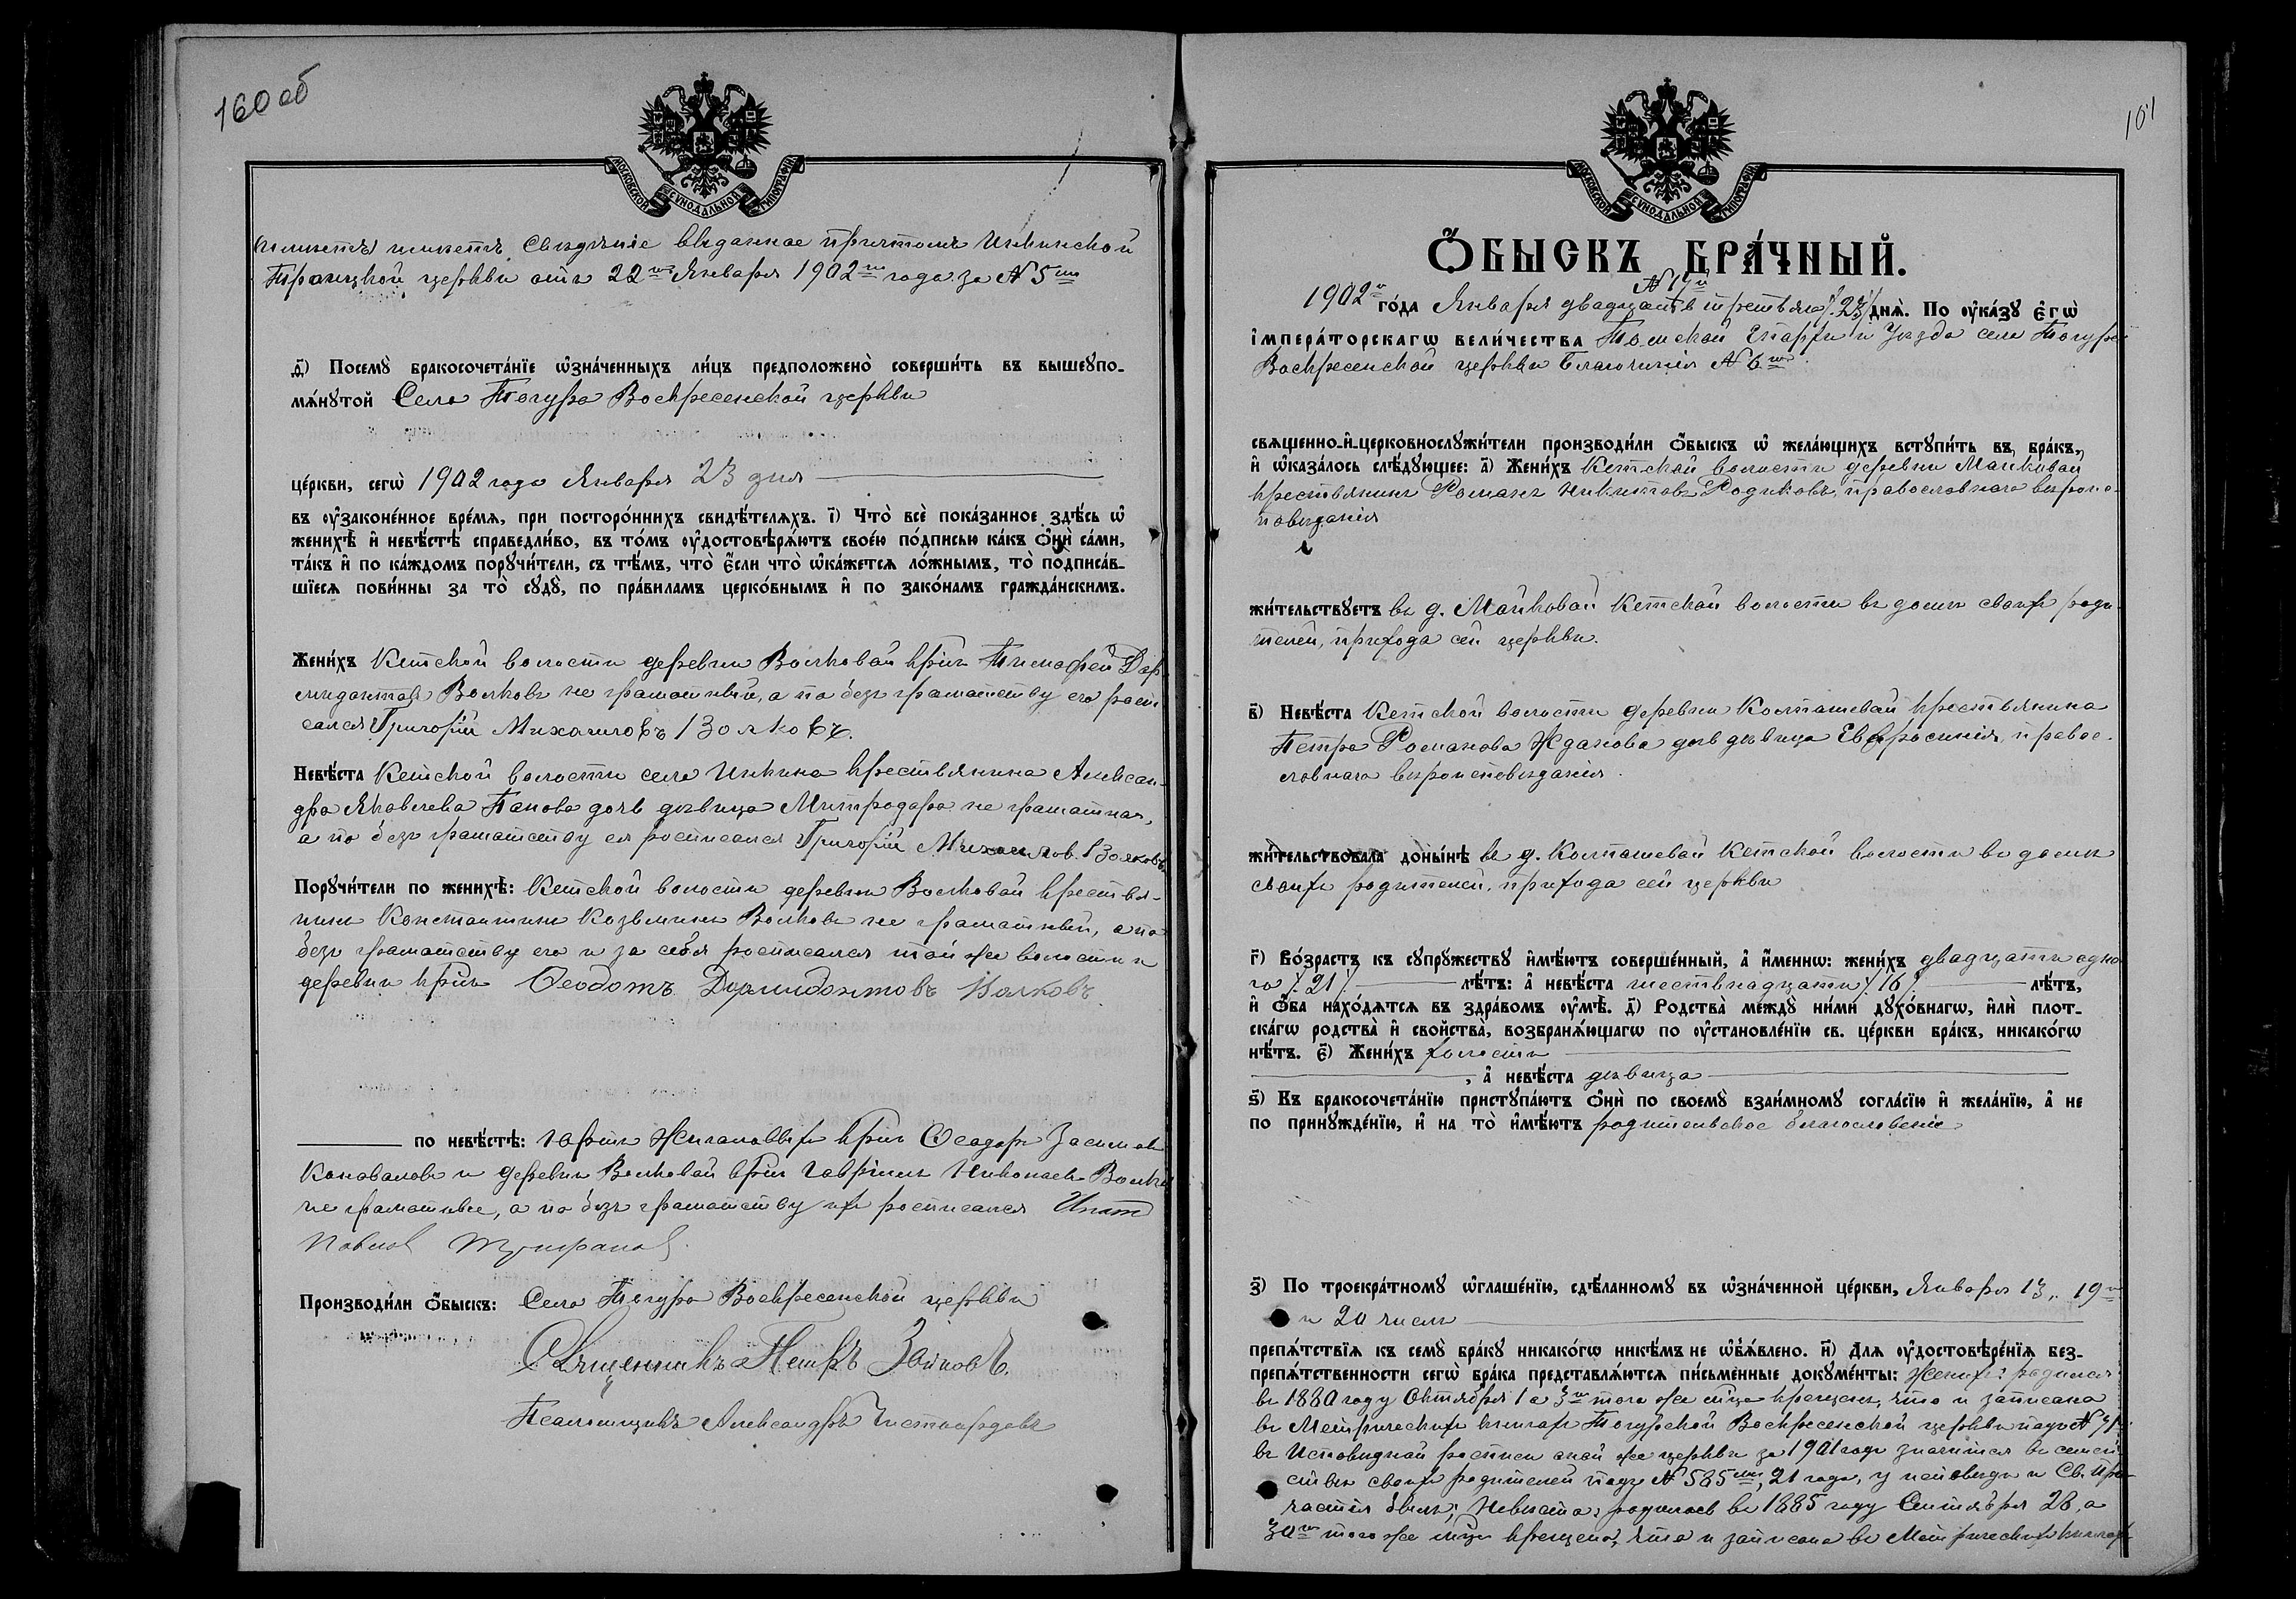 160 об
МОСКОВСКОЙ СѴНОДАЛЬНОЙ ТИПОГРАФІИ
Свѣдѣніе выданное причтомъ Инкинской
Троицкой церкви отъ 22го Января 1902го года за № 5мъ
д҃) Посемꙋ̀ бракосочета́нїе ѡ҆зна́ченныхъ ли́цъ предположено̀ соверши́ть въ вышеꙋпо-
мѧ́нꙋтой Села Тогура Воскресенской церкви
це́ркви, сегѡ̀ 1902 года Января 23 дня
въ ᲂу҆законе́нное вре́мѧ, при посторо́ннихъ свидѣ́телѧхъ. і҃) Что̀ всѐ пока́занное здѣ́сь ѡ҆
женихѣ̀ и҆ невѣ́стѣ справедли́во, въ то́мъ ᲂу҆достовѣрѧ́ютъ свое́ю по́дписью ка́къ ѻ҆нѝ са́ми,
та́къ и҆ по ка́ждомъ порꙋчи́тели, съ тѣ́мъ, что̀ є҆́сли что̀ ѡ҆ка́жетсѧ ло́жнымъ, то̀ подписа́в-
шїесѧ пови́нны за то̀ сꙋдꙋ̀, по пра́виламъ церко́внымъ и҆ по зако́намъ гражда́нскимъ.
Жени́хъ Кетской волости деревни Волковой кр͠нъ Тимофей Дор
мидонтовъ Волковъ не грамотный, а по безграмотству его распи
сался Григорій Михаиловъ Волковъ.
Невѣ́ста Кетской волости села Инкина крестьянина Алексан-
дра Яковлева Панова дочь дѣвица Митродора не грамотная,
а по безграмотству ея росписался Григорій Михаилов. Волковъ
Порꙋчи́тели по женихѣ̀: Кетской волости деревни Волковой крестья-
нинъ Константинъ Козьминъ Волковъ не грамотный, а по
безграмотству его и за себя росписался той же волости и
деревни кр͠нъ Ѳеодотъ Дормидонтовъ Волковъ.
по невѣ́стѣ: юртъ кр͠нъ Ѳеодоръ Засимовъ
Коноваловъ и деревни Волковой кр͠нъ Гавріилъ Николаевъ Волковъ
не грамотные, а по безграмотству ихъ росписался
Павлов
Производи́ли ѻ҆́быскъ: Села Тогура Воскресенской церкви
Священникъ Петръ
Псаломщикъ Александръ
101
МОСКОВСКОЙ СѴНОДАЛЬНОЙ ТИПОГРАФІИ
Ѻ҆́БЫСКЪ БРА́ЧНЫЙ.
№ 17й
1902го го́да Января двадцать третьяго /:23:/ днѧ̀. По ᲂу҆ка́зꙋ є҆гѡ̀
і҆мпера́торскагѡ вели́чества Томской Епархіи и Уѣзда села Тогура
Воскресенской церкви Благочинія № 6го
свѧще́нно-и҆-церковнослꙋжи́тели производи́ли ѻ҆́быскъ ѡ҆ жела́ющихъ встꙋпи́ть въ бра́къ,
и҆ ѡ҆каза́лось слѣ́дꙋющее: а҃) Жени́хъ Кетской волости деревни Майковой
крестьянинъ Романъ Никитовъ Родиковъ, православнаго вѣроис-
повѣданія
жи́тельствꙋетъ въ д. Майковой Кетской волости въ домѣ своихъ роди
телей, прихода сей церкви.
в҃) Невѣ́ста Кетской волости деревни Колпашевой крестьянина
Петра Романова Жданова дочь дѣвица Евфросинія, правос-
лавнаго вѣроисповѣданія.
жи́тельствовала доны́нѣ въ д. Колпашевой Кетской волости въ домѣ
своихъ родителей, прихода сей церкви
г҃) Во́зрастъ къ сꙋпрꙋжествꙋ и҆мѣ́ютъ соверше́нный, а҆ и҆́меннѡ: жени́хъ двадцати одно
го /:21:/ лѣ́тъ: а҆ невѣ́ста шестьнадцати /:16:/ лѣ́тъ,
и҆ ѻ҆́ба нахо́дѧтсѧ въ здра́вомъ ᲂу҆мѣ̀. д҃) Родства̀ междꙋ̀ ни́ми дꙋхо́внагѡ, и҆лѝ плот-
ска́гѡ родства̀ и҆ сво́йства̀, возбранѧ́ющагѡ по ᲂу҆становле́нїю св. це́ркви бра́къ, никако́гѡ
нѣ́тъ. є҃) Жени́хъ холостъ
, а҆ невѣ́ста дѣвица
ѕ҃) Къ бракосочета́нїю пристꙋпа́ютъ ѻ҆нѝ по своемꙋ̀ взаи́мномꙋ согла́сїю и҆ жела́нїю, а҆ не
по принꙋжде́нїю, и҆ на то̀ и҆мѣ́ютъ родительское благословеніе
з҃) По троекра́тномꙋ ѡ҆глаше́нїю, сдѣ́ланномꙋ въ ѡ҆зна́ченной це́ркви, Января 13, 19го
и 20 числъ
препѧ́тствїѧ къ семꙋ̀ бра́кꙋ никако́гѡ никѣ́мъ не ѡ҆б̾ѧ́влено. и҃) Длѧ ᲂу҆достовѣре́нїѧ без-
препѧ́тственности сегѡ̀ бра́ка представлѧ́ютсѧ пи́сьменные докꙋме́нты: Женихъ: родился
въ 1880 году Октября 1 а 3го того же мѣсяца крещенъ, что и записано
въ Метрическихъ книгахъ Тогурской Воскресенской церкви подъ № 71
въ Исповѣдной росписи оной же церкви за 1901 годъ значится въ семей-
ствѣ своихъ родителей подъ № 585мъ, 21 года, у исповѣди и Св. При-
частія былъ; Невѣста: родилась въ 1885 году Сентября 28, а
30го того же мѣсяца крещена, что и записано въ Метрическихъ книгахъ